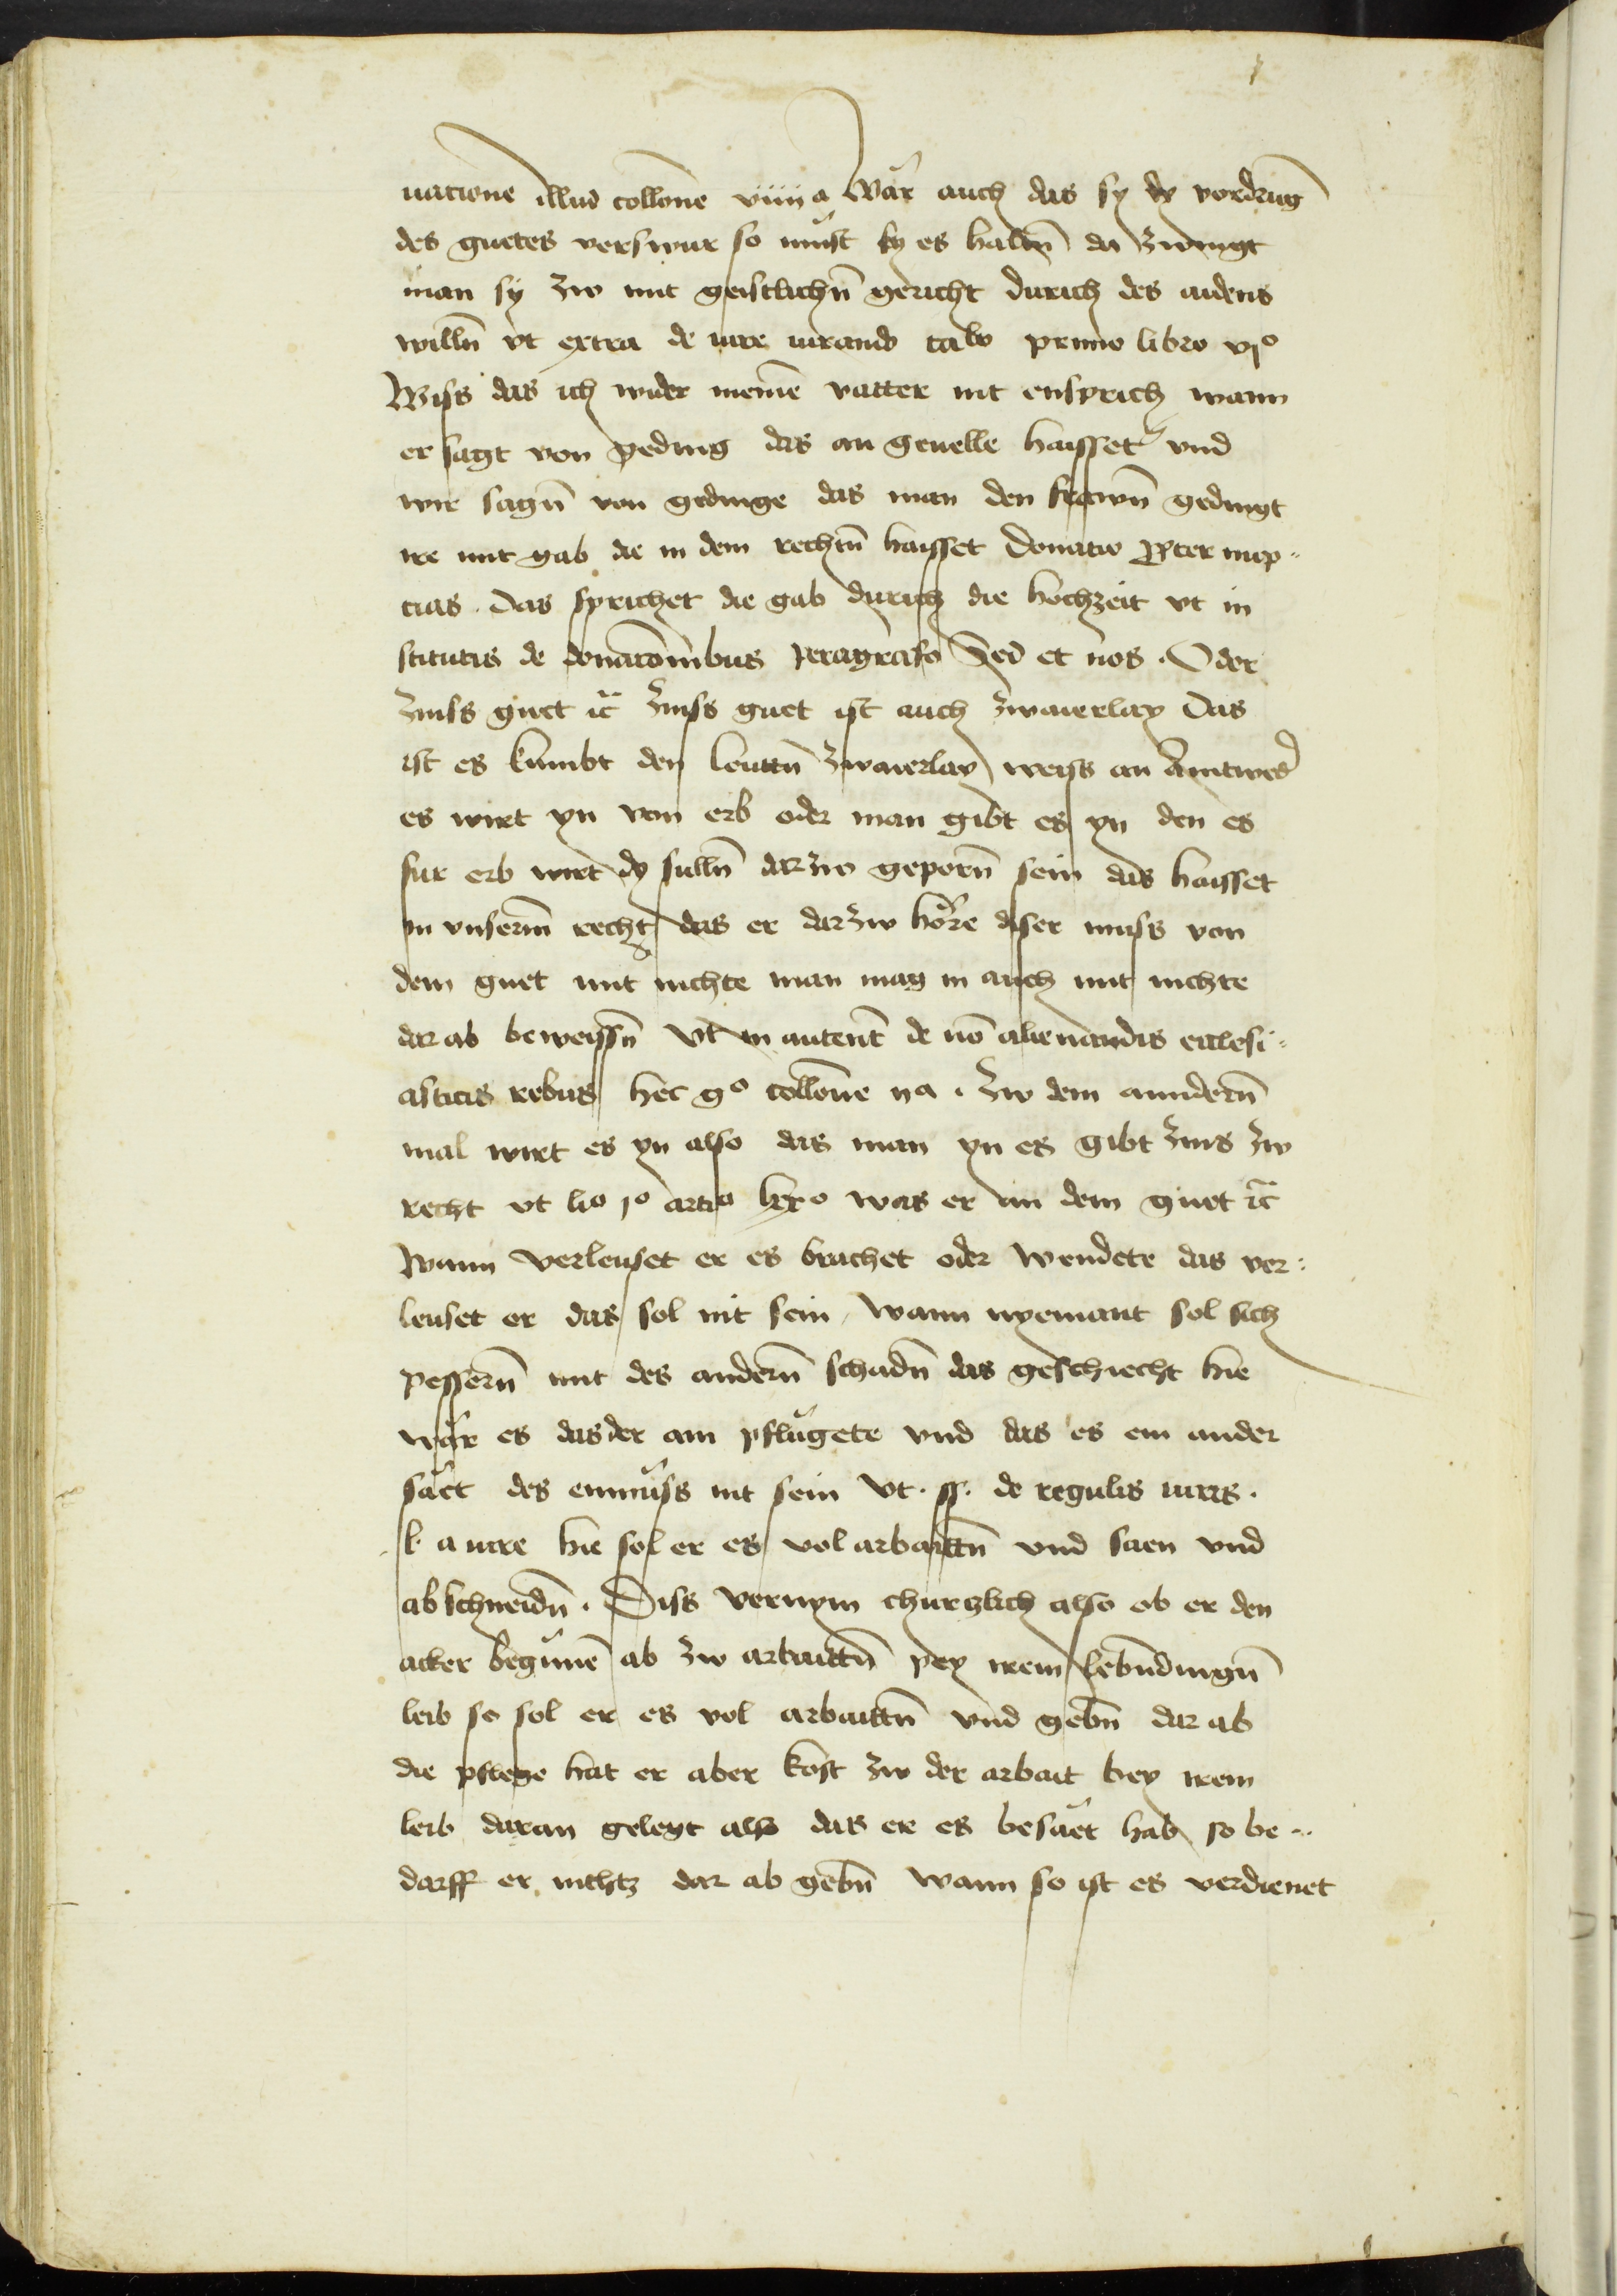 uacione illud collone viiij a Wär auch das sy dy vordruḡ
des guetes verswur so müst sy es haltn̄ da zwingt
man sy zw mit geistlichn̄ gericht durich des aidens
willn̄ vt extra de iure iurando calo primo libro vjo
Wiss das ich wider meinē vatter nit ensprich wann
er sagt von geding das an geuelle haisset vnd
wir sagn̄ von gedinge das man den frawn̄ gedingt
ire mit gab die in dem rechtn̄ haisset donatio ꝓter nup-
cias . Das sprichet die gab durich die hochzeit vt in
stitutis de donacōnibus peragrafo Sed et nos . Oder
zinss guet ꝛc̄ zinss guet ist auch zwaierlay Das
ist es kumbt den leuttn̄ zwaierlay weiss an Aintwed̄
es wirt yn von erb oder man gibt es yn den es
fur erb wirt dy sulln̄ darzw geporn̄ sein das haisset
in vnserm̄ recht das er darzw höre diser muss von
dem guet mit nichte man mag in auch mit nichte
dar ab beweissn̄ Vt in autent̄ de nō alienandis ecclesi-
asticis rebus hec go collone ij a . Zw dem anndern̄
mal wirt es yn also das man yn es gibt zins zw
recht vt lio jo artio lxxo was er an dem guet ꝛc̄
Wann verleuset er es brachet oder wendete das ver-
leuset er das sol nit sein , wann nyemant sol sich
pessern̄ mit des andern̄ schadn̄ das geschiecht hie
wär es das der ain pflügete vnd das es ein ander
säet des enmüss nit sein Vt . ff . de regulis iuris .
l . a iure hie sol er es vol arbaittn̄ vnd saen vnd
abschneidn̄ . Diss vernym churczlich also ob er den
acker begunē ab zw arbaittn̄ pey irem lebn̄dingn̄
leib so sol er es vol arbaittn̄ vnd gebn̄ dar ab
die pflege hat er aber kost zw der arbait bey irem
leib daran gelegt also das er es besäet hab so be-
darff er nichtz dar ab gebn̄ wann so ist es verdienet